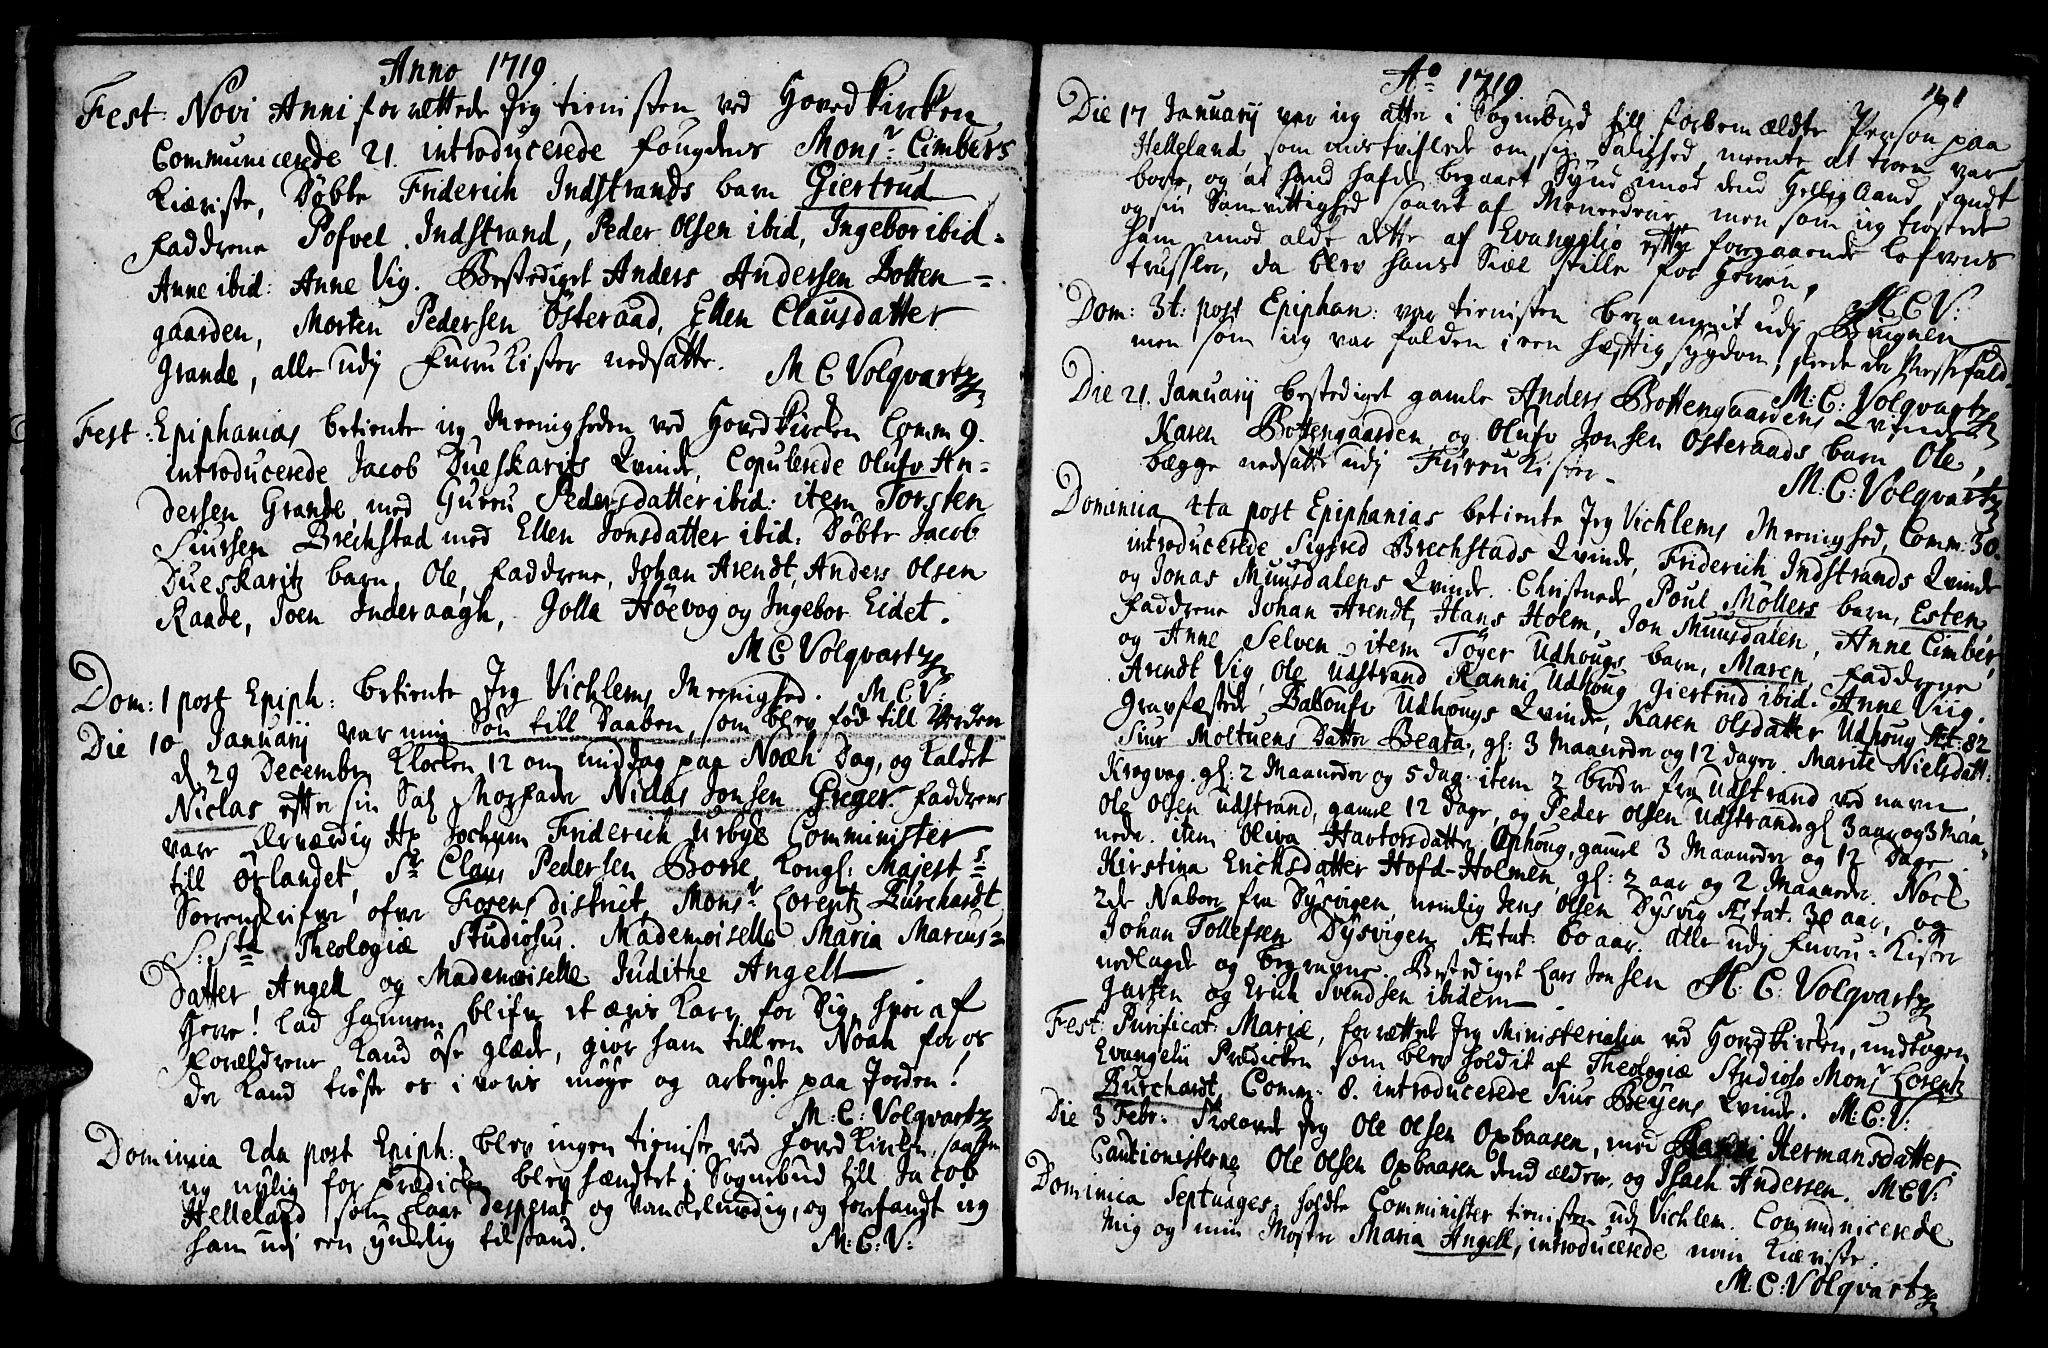 Anno 1719
Fest: Novi Anni forrettede Jeg tienisten ved Hovedkircken
Communicerede 21. introducerede fougdens Monsr. Cimbers
Kieriste, Döbte Friderich Indstrands barn Giertrud
Faddrene Pofvel Indstrand, Peder Olsen ibid, Ingebor ibid.
Anne ibid: Anne Vig. Bestediget Anders Andersen Botten=
gaarden, Morten Pedersen Österaad, Ellen Clausdatter
Grande, alle udj Furru Kister nedsatte. M C Volqvartz
Fest: Epiphanias betiente ieg Meenigheden ved Hovedkircken Comm 9.
introducerede Jacob Dueskarits Qvinde, Copulerede Olufv An=
dersen Grande med Gurru Pedersdatter ibid: item Torsten
Siursen Brechstad med Ellen Jonsdatter ibid: Döbte Jacob
Dueskaritz barn, Ole, Faddrene, Johan Arendt, Anders Olsen
Raade, Joen Inderaagh, Jolla Höevog og Ingebor Eidet.
M C Volqvartz
Dom: 1 post Epiph: betiente Jeg Vichlems Meenighed. M.C.V:
Die 10 Januarij var min Sön till Daaben, som blev föd till Verden
d. 29 December Klocken 12 om middag paa Noæh Dag, og kaldet
Niclas efter sin Sal Morfader Niclas Jonsen Greger. Faddrene
vare Ærværdig Hr Jochum Friderich Ürbye Comminister
till Örlandet, Sr Claus Pedersen Borre, Kongl: Majest:s
Sorrenskrifver ofver Fosens district, Monsr Lorentz Burchardt
S: Stæ Theologiæ Studiosus. Mademoiselle Maria Marcus=
Datter Angell og Mademoiselle Judithe Angell
Herre! lad hannem blifve et æris Karr for Dig, hvor af
Forældrene kand öse glæde, giör ham till een Noah for os
der kand tröste os i voris möye og arbeyde paa Jorden!
M: C: Volqvartz
Dominica 2da post Epiph: blev ingen tieniste ved Hovedkircken, saasom
ieg nylig for Prædicken blev hændtet i Sognebud till Jacob
Helleland som laae desperat og vankelmodig, og forfandt ieg
ham udj een ynkelig tilstand. M: C: V:
Ao 1719
Die 17 Januarij var ieg atter i Sognebud till forbemældte Person paa
Helleland, som mistviflede om sin Salighed, meente at troen var
borte, og at hand hafde begaaet Synd imod dend Hellig Aand, fandt
og sin Samvittighed saaret af Meneederne, men som ieg tröstede
ham imod aldt dette af Evangelio efter foregaaende Lofvens
trussler, da blev hans Siæl stille for Herren. M:C:V:
Dom: 3t: post Epiphan: var tienisten berammit udj Biugnen
men som ieg var falden i een hæftig sygdom, skede der Messefald
M: C: Volqvartz
Die 21. Januarij bestediget gamle Anders Bottengaardens Qvinde
Karen Bottengaarden og Olufv Jonsen Osteraads barn Ole,
begge nedsatte udj Furru Kister.
M: C: Volqvartz
Dominica 4ta post Epiphanias betiente Jeg Vichlems Meenighed, Comm: 30.
introducerede Sigfred Brechstads Qvinde, Friderich Indstrands Qvinde
og Jonas Muusdalens Qvinde. Christnede Poul Möllers barn, Esten,
Faddrene Johan Arendt, Hans Holm, Jon Muusdalen, Anne Cimber,
og Anne Selven. item Töger Udhougs barn, Maren, Faddrene
Arendt Vig, Ole Udstrand Ranni Udhoug, Giertrud ibid. Anne Viig.
Gravfæstede Udhougs Qvinde, Karen Olsdatter Udhoug Æt: 82
Siur Moltuens Datter Beata, gl: 3 Maaneder og 12 dager. Marite Nielsdatt:
Krogvag. gl: 2 Maaneder og 5 dag: item 2 brödre fra Udstrand ved navn,
Ole Olsen Udstrand, gamel 12 Dage, og Peder Olsen Udstrand gl 3 aar og 3 Maa=
neder. item Oliva Havtorsdatter Ophoug, gamel 3 Maaneder og 12 Dage.
Kirstina Erichsdatter Hofd-Holmen, gl: 2 aar og 2 Maaneder. Noch
2de Naboer fra Dysvigen nemlig Jens Olsen Dysvig Ætat. 30 aar, og
Johan Tollefsen Dysvigen Ætat: 60 aar. alle udj Furru=Kister
nedlagde og begravne. Bestediget Lars Jonsen
Garten og Erich Svendsen ibidem. M. C: Volqvartz
Fest: Purificat: Mariæ, forrettet Jeg Ministerialia ved Hovedkircken, undtagen
Evangelii Prædicken som blev holdit af Theologiæ Studioso Monsr Lorentz
Burchardt, Comm: 8. introducerede Siur Beyens Qvinde. M: C: V:
Die 3 Febr. Trolovede Jeg Ole Olsen Oxbaasen, med Hermansdatter
Cautionisterne Ole Olsen Oxbaasen dend ældre og Isach Andersen. M:C:V:
Dominica Septuages, holdte Comminister tienisten udj Vichlem. Communicerede
Mig og min Moster Maria Angell, introducerede min Kieriste.
M: C: Volqvartz